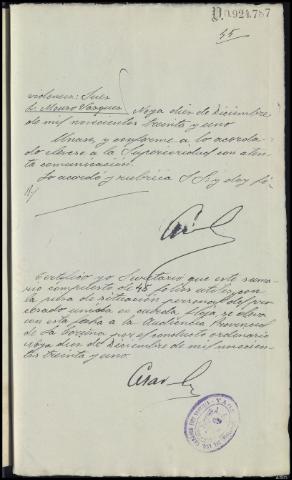 D.0.924.787
45
Juez
Sr. Mouro Vazquez. Noya diez de Diciembre
de mil novecientos treinta y uno
Unase, y conforme a lo acorda-
do elevese a la Superioridad con aten-
ta comunicación.
Lo acordó y rubrica S Sª doy fé
Certifico yo Secretario que este suma-
rio compuesto de 45 folios utiles con
la pieza de situación personal del pro-
cesado unida en cuerda floja, se eleva
con esta fecha a la Audiencia Provincial
de La Coruña por el conducto ordinario
Noya diez de Diciembre de mil novecien-
tos treinta y uno.